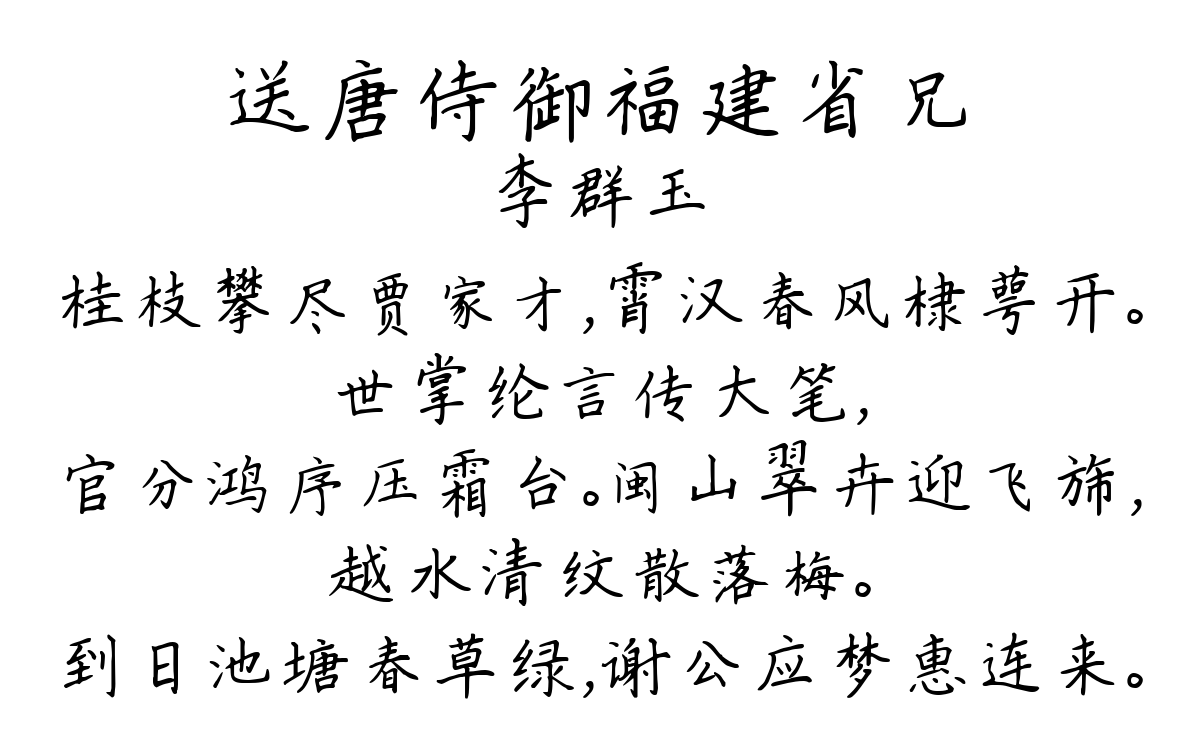 送唐侍御福建省兄
李群玉
桂枝攀尽贾家才,霄汉春风棣萼开。
世掌纶言传大笔,
官分鸿序压霜台。闽山翠卉迎飞旆,
越水清纹散落梅。
到日池塘春草绿,谢公应梦惠连来。